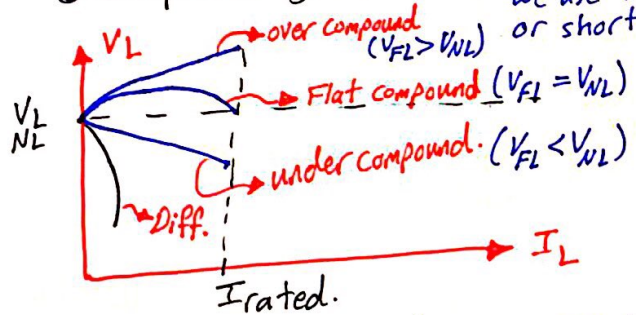 we use
or short
V_L
over compound
(V_FL > V_NL)
V_L
NL
Flat compound (V_FL = V_NL)
under compound. (V_FL < V_NL)
Diff.
I_L
I rated.